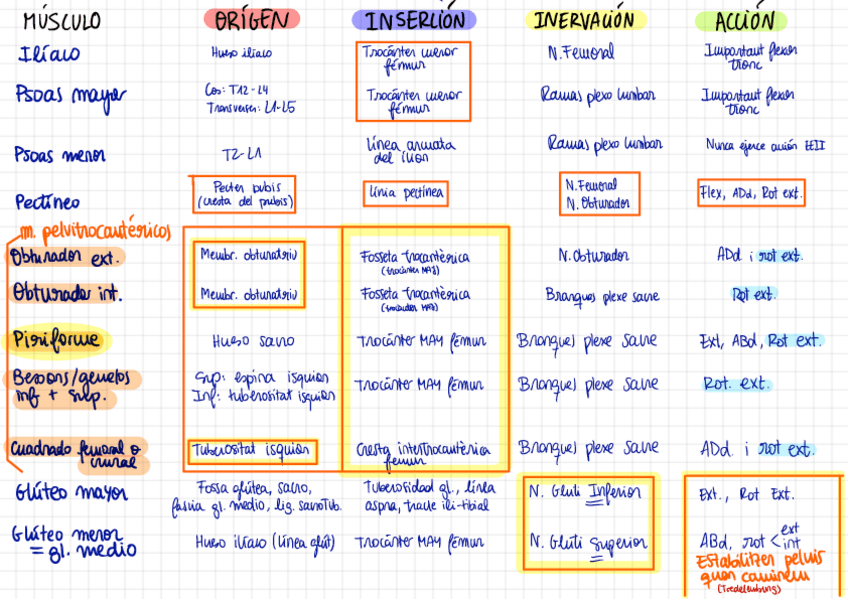 MÚSCULO ORÍGEN INSERCIÓN INERVACIÓN ACCIÓN
Ilíaco Hueso ilíaco Trocánter menor fémur N. Femoral Important flexor tronc
Psoas mayor Cos: T12-L4 Transverses: L1-L5 Trocánter menor fémur Ramas plexo lumbar Important flexor tronc
Psoas menor T2-L1 Línea arcuata del ilion Ramas plexo lumbar Nunca ejerce acción EEII
Pectíneo Pecten pubis (cresta del pubis) Línia pectínea N. Femoral N. Obturador Flex, ADd, Rot ext.
m. pelvitrocantéricos
Obturador ext. Membr. obturatriu Fosseta trocantèrica (trocánter MAJ) N. Obturador ADd i rot ext.
Obturador int. Membr. obturatriu Fosseta trocantèrica (trocánter MAJ) Branques plexe sacre Rot ext.
Piriforme Hueso sacro Trocánter MAY fémur Branques plexe sacre Ext, ABd, Rot ext.
Bessons/gemelos inf + sup. Sup: espina isquion Inf: tuberositat isquion Trocánter MAY fémur Branques plexe sacre Rot. ext.
Cuadrado femoral o crural Tuberositat isquion Cresta intertrocantérica femur Branques plexe sacre ADd. i rot ext.
Glúteo mayor Fossa glútea, sacro, fascia gl. medio, lig. sacroTub. Tuberosidad gl., línea aspra, tracte ili-tibial N. Gluti Inferior Ext., Rot Ext.
Glúteo menor = gl. medio Hueso ilíaco (línea glút) Trocánter MAY fémur N. Gluti Superior ABd, rot < ext int
Estabilitzen pelvis quan caminem
(Tredelemburg)